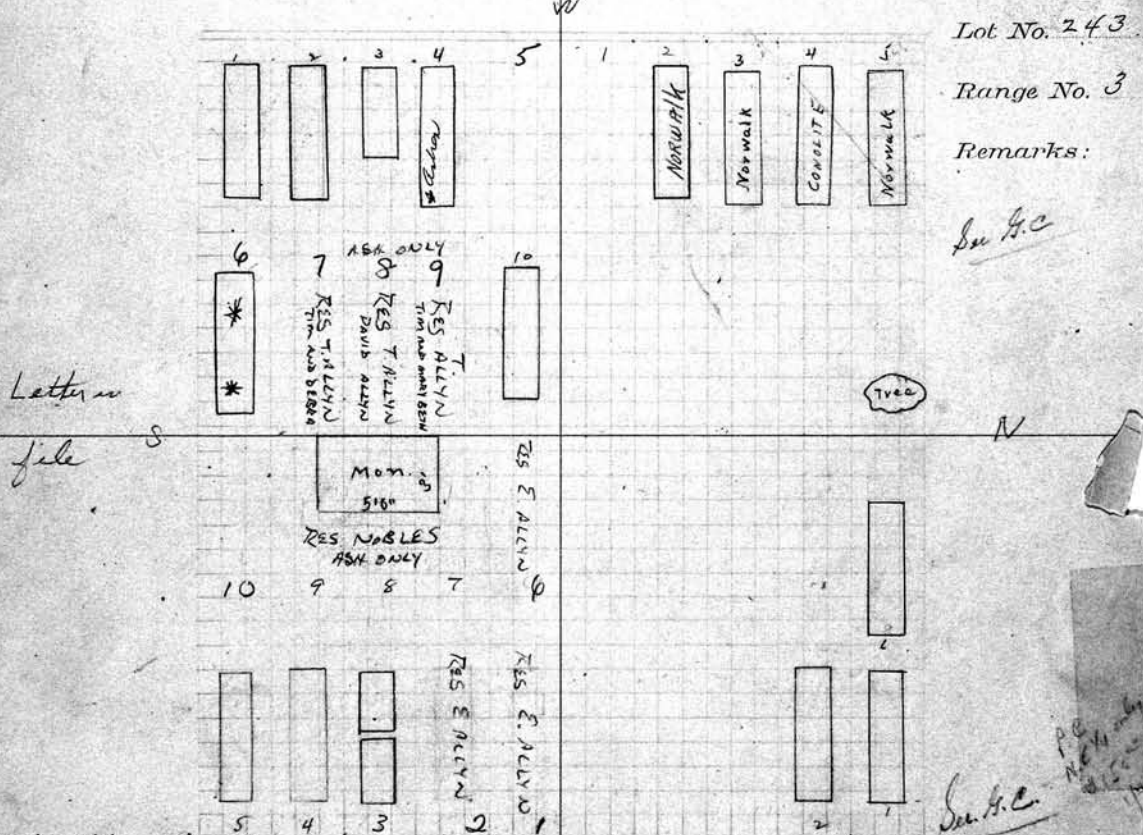 W
Lot No. 243
Range No. 3
Remarks:
See G.C
1 2 3 4 5
1 2 3 4 5
NORWALK
Norwalk
CONOLITE
Norwalk
ASH ONLY
6 7 8 9 10
RES T. ALLYN
TIM AND DEBRA
RES T. ALLYN
DAVID ALLYN
RES T. ALLYN
TIM AND MARY BETH
Tree
Letter in
file
S
N
Mon.
5'6"
RES NOBLES
ASH ONLY
RES E. ALLYN
10 9 8 7 6
6
RES E ALLYN
RES E. ALLYN
5 4 3 2 1
2 1
See G.C.
P.C